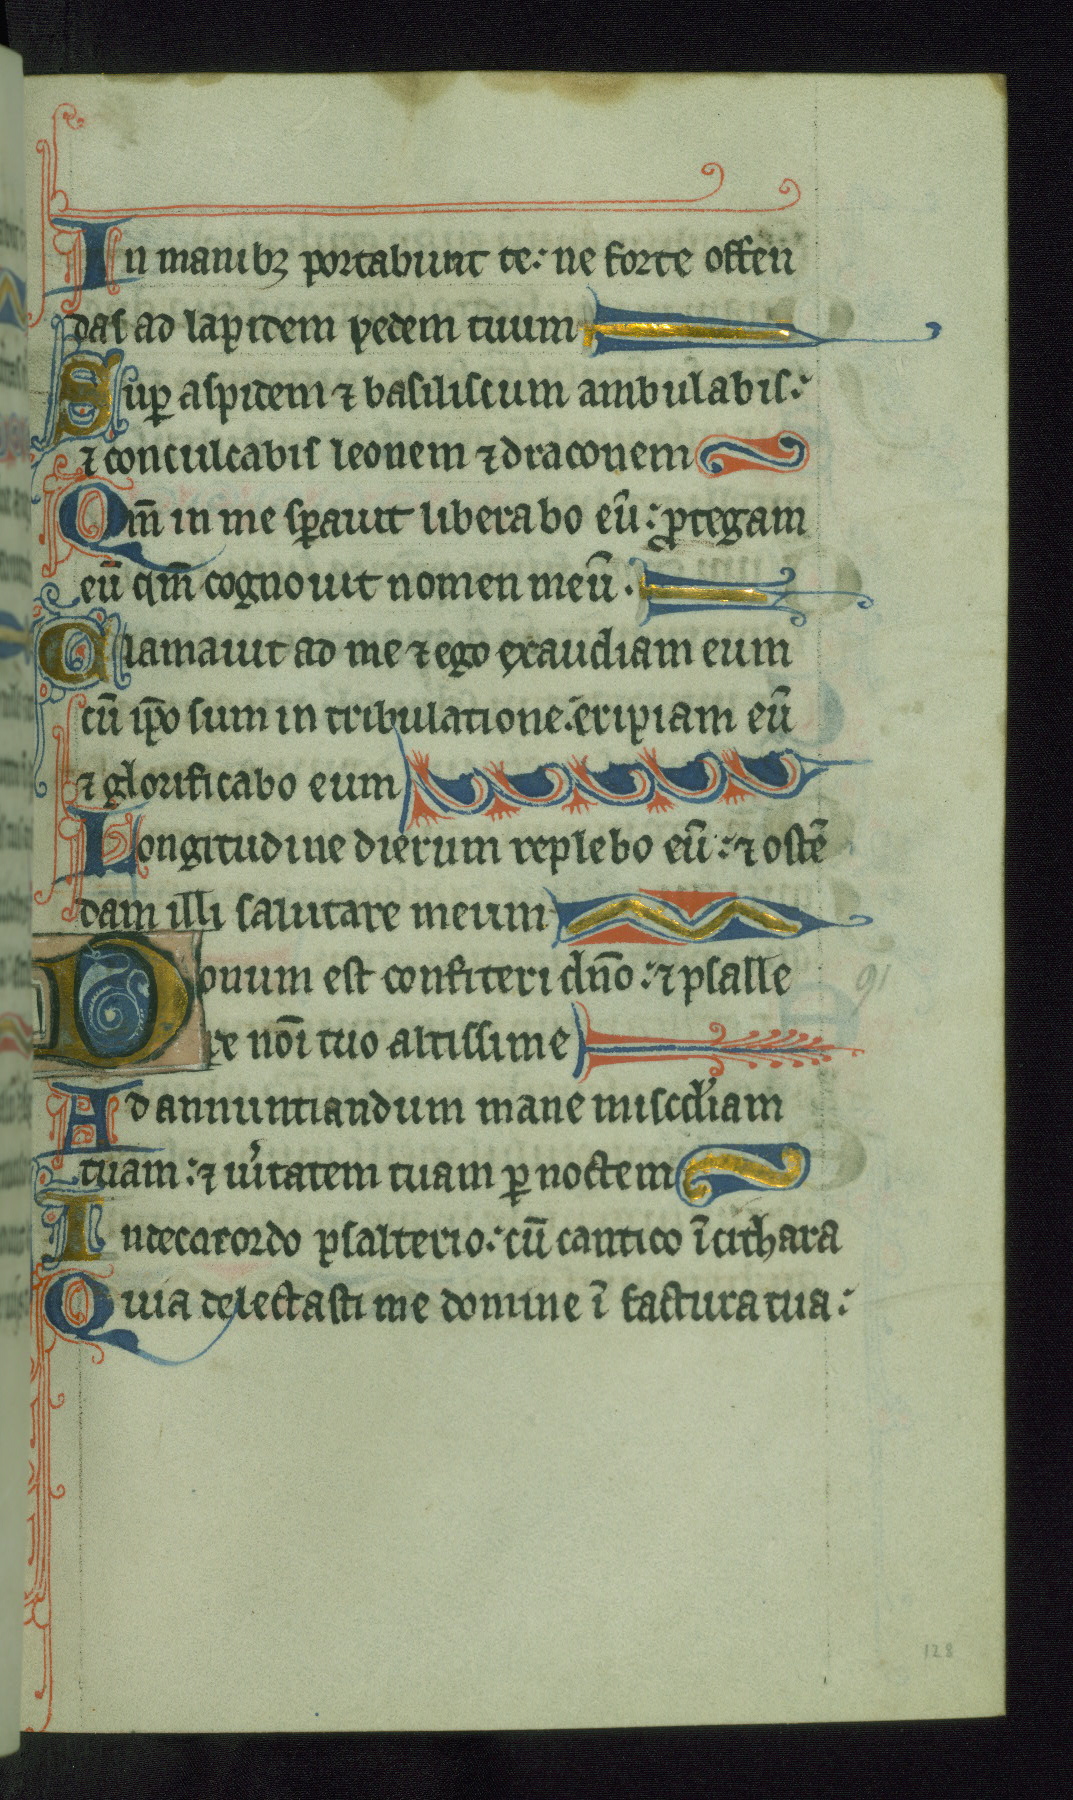 In manibꝫ portabunt te: ne forte offen
das ad lapidem pedem tuum
Suꝑ aspidem ⁊ basiliscum ambulabis:
⁊ conculcabis leonem ⁊ draconem
Qm̄ in me sꝑauit liberabo eū: ꝓtegam
eū qm̄ cognouit nomen meū.
Clamauit ad me ⁊ ego exaudiam eum
cū ip̄o sum in tribulatione: eripiam eū
⁊ glorificabo eum
Longitudine dierum replebo eū: ⁊ ostē
dam illi salutare meum
Bonum est confiteri dn̄o: ⁊ psalle
re noī tuo altissime
91
Ad annuntiandum mane miscd'iam
tuam: ⁊ u'itatem tuam ꝑ noctem
In decacordo psalterio: cū cantico ī cithara
Quia delectasti me domine ī factura tua:
128